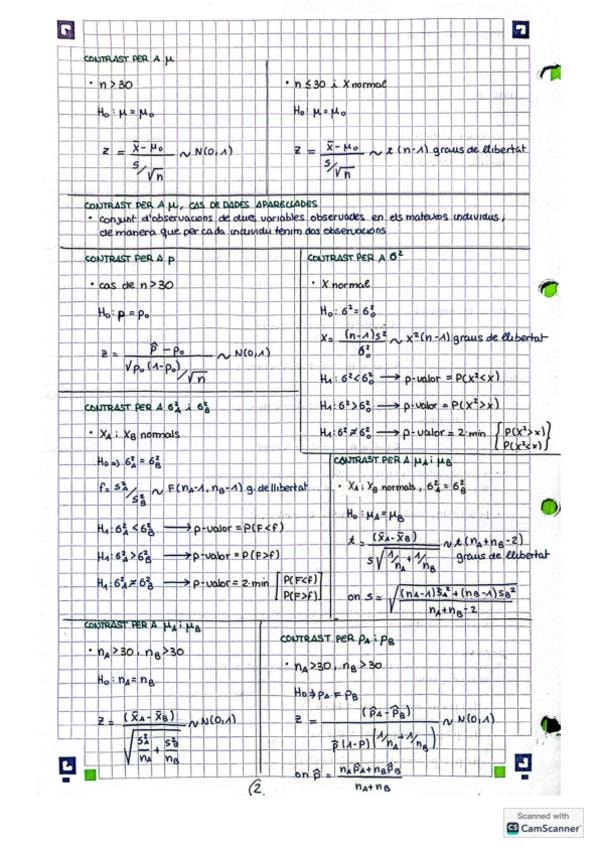 CONTRAST PER A μ
• n>30
H₀: μ = μ₀
z = (x̄ - μ₀) / (s/√n) ~ N(0,1)
• n ≤ 30 i X normal
H₀: μ = μ₀
z = (x̄ - μ₀) / (s/√n) ~ t(n-1) graus de llibertat
CONTRAST PER A μ, CAS DE DADES APARELLADES
• conjunt d'observacions de dues variables observades en els mateixos individus,
de manera que per cada individu tenim dos observacions
CONTRAST PER A p
• cas de n>30
H₀: p = p₀
z = (p̂ - p₀) / (√p₀(1-p₀)/√n) ~ N(0,1)
CONTRAST PER A σ²
• X normal
H₀: σ² = σ₀²
X = (n-1)s² / σ₀² ~ x²(n-1) graus de llibertat
H₁: σ² < σ₀² → p-valor = P(X²<x)
H₁: σ² > σ₀² → p-valor = P(X²>x)
H₁: σ² ≠ σ₀² → p-valor = 2·min {P(X²>x)
P(X²<x)}
CONTRAST PER A σ²A i σ²B
• XA i XB normals
H₀ ⇒ σ²A = σ²B
f = s²A/s²B ~ F(nA-1, nB-1) g. de llibertat
H₁: σ²A < σ²B → p-valor = P(F<f)
H₁: σ²A > σ²B → p-valor = P(F>f)
H₁: σ²A ≠ σ²B → p-valor = 2·min [P(F<f)
P(F>f)]
CONTRAST PER A μA i μB
• XA i XB normals, σ²A = σ²B
H₀: μA = μB
t = (x̄A - x̄B) / (s√(1/nA + 1/nB)) ~ t(nA+nB-2)
graus de llibertat
on s = √(((nA-1)sA² + (nB-1)sB²) / (nA+nB-2))
CONTRAST PER A μA i μB
• nA>30, nB>30
H₀: nA = nB
z = (x̄A - x̄B) / √(s²A/nA + s²B/nB) ~ N(0,1)
CONTRAST PER pA i pB
• nA>30, nB>30
H₀ ⇒ pA = pB
z = (p̂A - p̂B) / (p̂(1-p)(1/nA + 1/nB)) ~ N(0,1)
on p̂ = (nAp̂A + nBp̂B) / (nA+nB)
(2
Scanned with
CS CamScanner